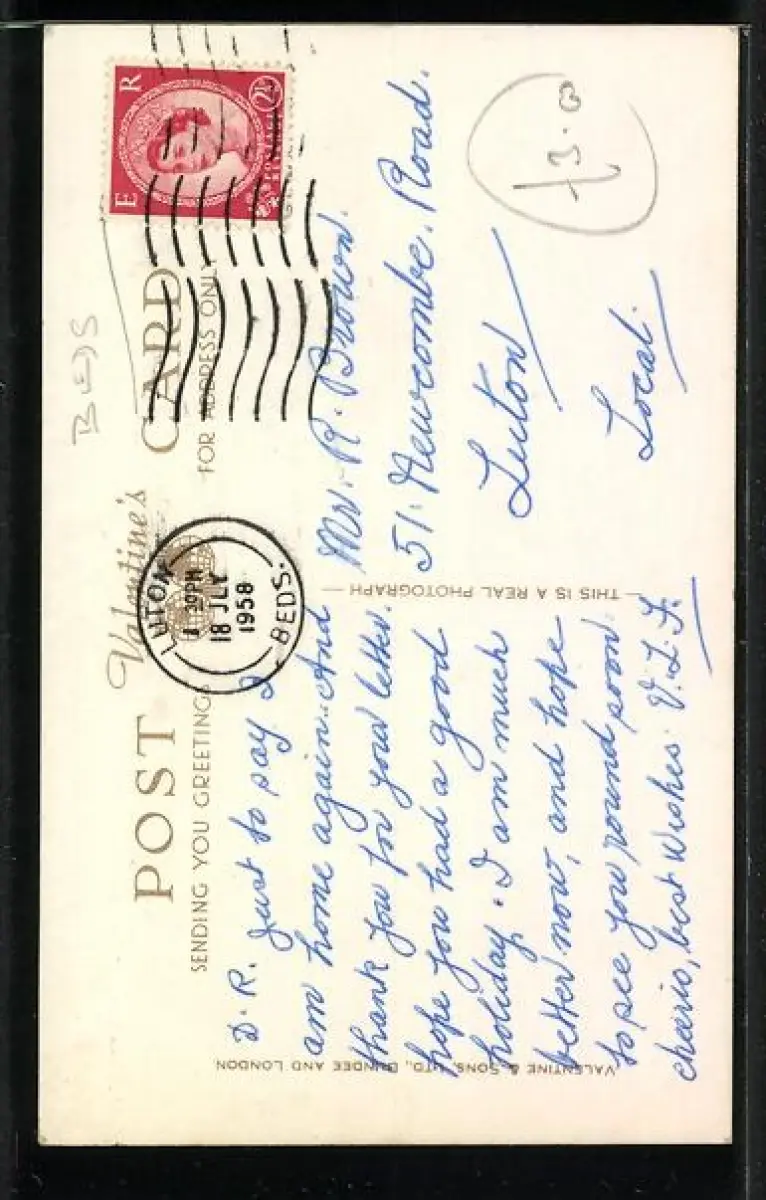 BEDS
POST CARD
Valentine's
SENDING YOU GREETINGS
FOR ADDRESS ONLY
E R
POSTAGE
REVENUE
2½D
LUTON
30PM
18 JLY
1958
BEDS.
D.R. Just to say I
am home again. And
thank you for your letter.
hope you had a good
holiday. I am much
better now, and hope
to see you round soon.
cheerio, best wishes. V.L.F.
VALENTINE & SONS, LTD., DUNDEE AND LONDON
THIS IS A REAL PHOTOGRAPH
Mr. R. Brown.
51. Newcombe. Road.
Luton
Local.